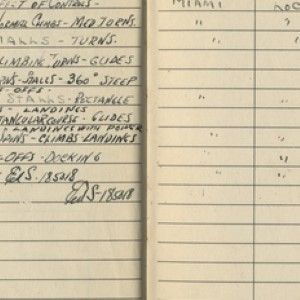 FFECT OF CONTROLS-
NORMAL CLIMBS-MED TURNS.
STALLS - TURNS.
CLIMBING TURNS-GLIDES
RNS-STALLS-360° STEEP
T-OFFS-
STALLS-RECTANGLE
S - LANDINGS
TANGULAR COURSE-GLIDES
- LANDINGS WITH POWER
SPINS-CLIMBS-LANDINGS
-OFFS-DOCKING
185218
185218
MIAMI
"
"
"
"
"
"
ROC
"
"
"
"
"
"